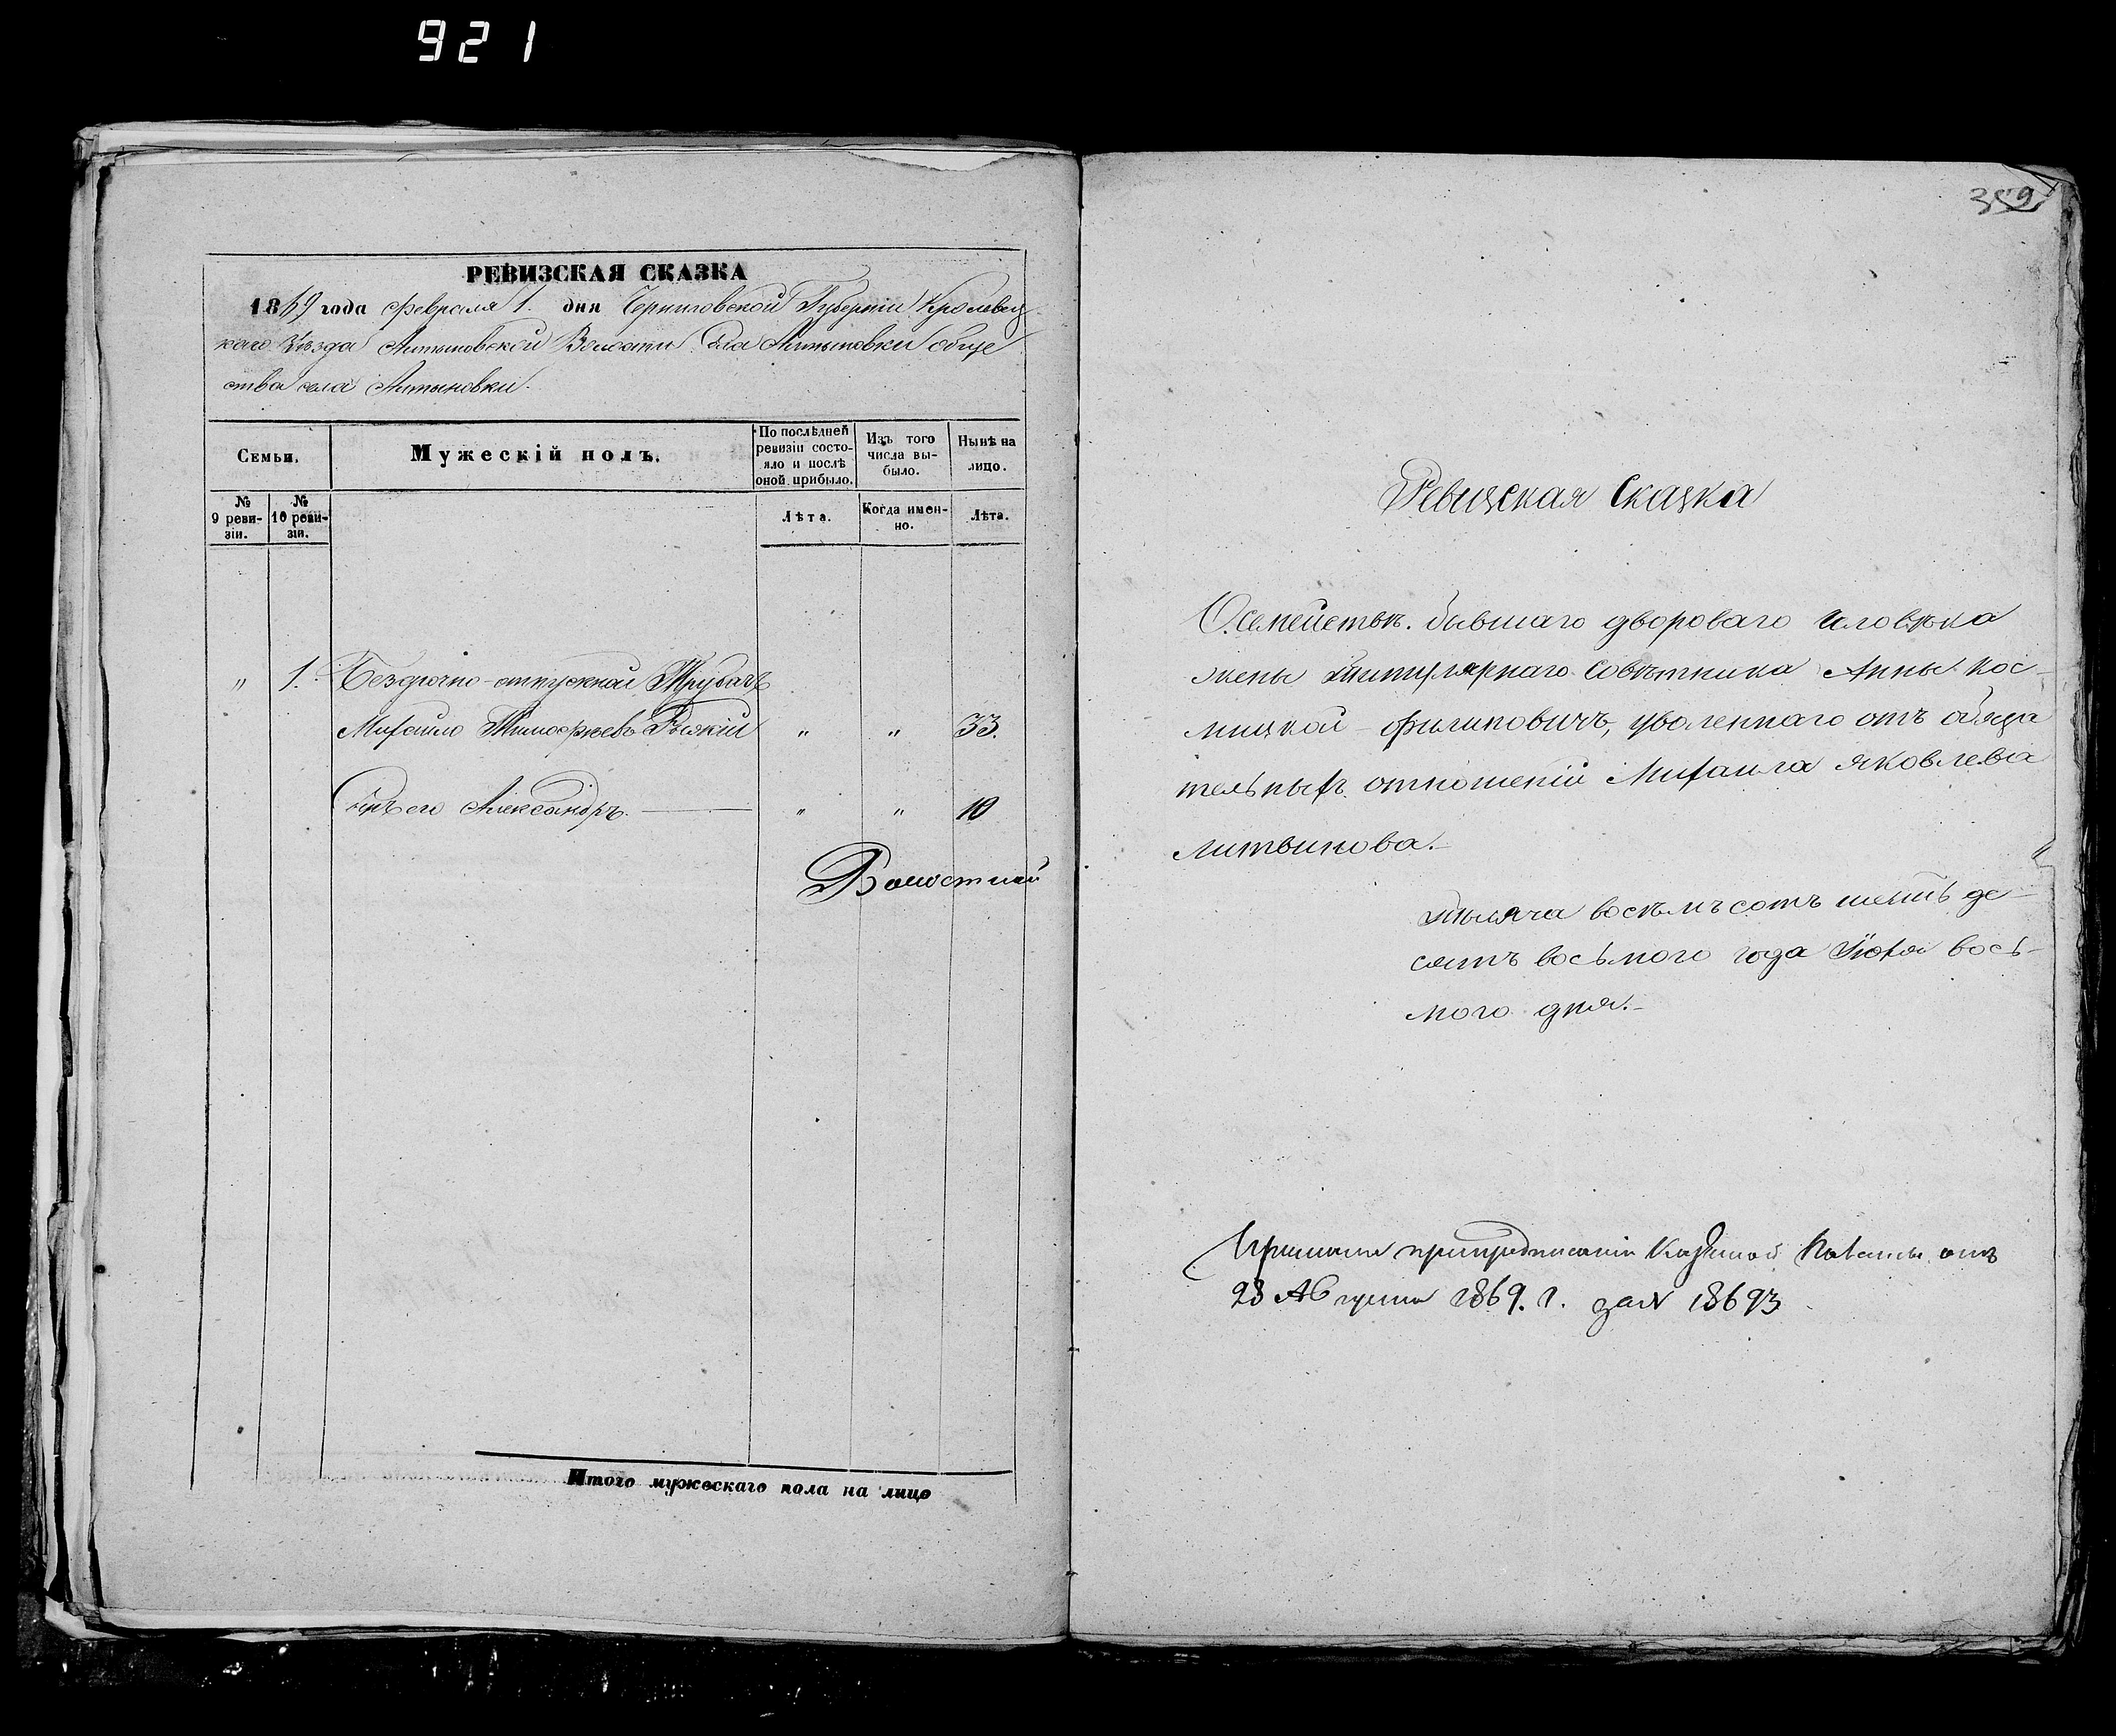 921
РЕВИЗСКАЯ СКАЗКА
1869 года Февраля 1. дня Черниговской Губерніи Кролевец
каго Уѣзда Литыновской Волости Села Литыновки обще
ства села Литыновки.
Семьи.
Мужескій полъ.
По послѣдней ревизіи состо-
яло и послѣ оной прибыло.
Изъ того числа вы-
было.
Нынѣ на лицо.
№ 9 реви-
зіи.
№ 10 реви-
зіи.
Лѣта.
Когда имен-
но.
Лѣта.
" 1. Безсрочно-отпускной Трубачъ
Михаило Тимофѣевъ " " 33.
Сынъ его Александръ. " " 10
Волостной
Итого мужескаго пола на лицо
359
Ревизская Сказка
О семействѣ бывшаго двороваго человѣка
жены титулярнаго совѣтника Анны Кос-
мицкой-Филиповичъ, уволеннаго отъ обяза
тельныхъ отношеній Михаила Яковлева
Литвинова.-
Тысяча восѣмъсотъ шесть де-
сятъ восьмого года Іюля вось-
мого дня.-
при предписаніи Казенной Палаты отъ
28 Августа 1869. г. за № 18693